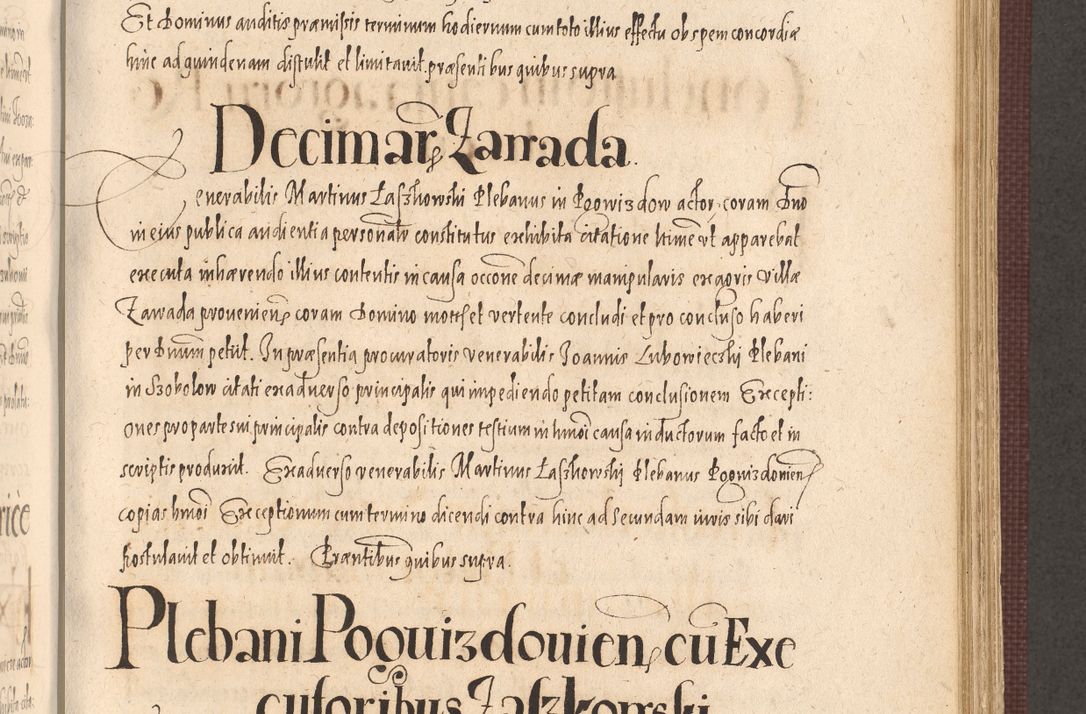 Et Dominus auditis præmissis terminum hodiernum cum toto illius effectu ob spem concordiæ
hinc ad quindenam distulit et limitavit præsentibus quibus supra
Decimar. Zarrada.
enerabilis Martinus Łaszkowski Plebanus in Pogwizdow actor, coram Dno
in eius publica audientia personalr constitutus exhibita citatione hinc vt apparebat
executa inhærendo illius contentis in causa occone decimæ manipularis ex agris Villæ
Zarrada provenien, coram Domino mottf et vertente concludi et pro concluso haberi
per Dnum petiit. In præsentia procuratoris venerabilis Joannis Lubowieczki Plebani
in Szobolow citati ex adverso principalis qui impediendo petitam conclusionem Excepti:
ones pro parte sui principalis contra depositiones testium in hmoi causa inductorum facto et in
scriptis produxit. Ex adverso venerabilis Martinus Łaszkowski Plebanus Pogwizdowien,
copias hmoi Exceptionum cum termino dicendi contra hinc ad Secundam iuris sibi dari
postulavit et obtinuit. Præntibus quibus supra.
Plebani Poguizdouien, cū Exe
cutoribus Zaszkowski